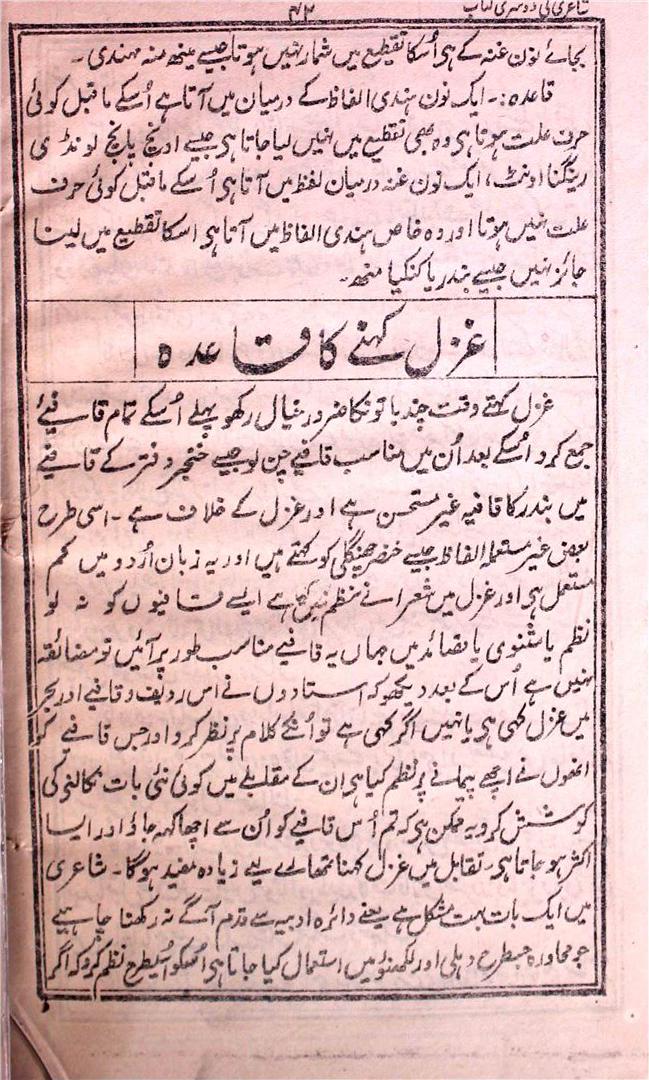 ۴۲
شاعری کی دوسری کتاب
بجائے نون غنہ کے ہی اُسکا تقطیع میں شمار نہیں ہوتا جیسے مینھ منہ مہندی ۔
قاعدہ :۔ ایک نون ہندی الفاظ کے درمیان میں آتا ہے اُسکے ماقبل کوئی
حرف علت ہوتا ہی وہ بھی تقطیع میں نہیں لیا جاتا ہی جیسے اونچ پانچ لونڈی
رینگنا اونٹ، ایک نون غنہ درمیان لفظ میں آتا ہی اُسکے ماقبل کوئی حرف
علت نہیں ہوتا اور وہ خاص ہندی الفاظ میں آتا ہی اسکا تقطیع میں لینا
جائز نہیں جیسے بندریا کنکیا منھ۔
غزل کہنے کا قاعدہ
غزل کہتے وقت چند باتونکا ضرور خیال رکھو پہلے اُسکے تمام قافیئے
جمع کرو اُسکے بعد اُن میں مناسب قافیے چن لو جیسے خنجر دفتر کے قافیئے
میں بندر کا قافیہ غیر مستحسن ہے اور غزل کے خلاف ہے ۔ اسی طرح
بعض غیر مستعملہ الفاظ جیسے خنصر چھنگلی کو کہتے ہیں اور یہ زبان اُردو میں کم
مستعمل ہی اور غزل میں شعرا نے نظم نہیں کی ہے ایسے قافیوں کو نہ لو
نظم یا مثنوی یا قصائد میں جہاں یہ قافیے مناسب طور پر آئیں تو مضائقہ
نہیں ہے اُس کے بعد دیکھو کہ استادوں نے اس ردیف و قافیے اور بحر
میں غزل کہی ہی یا نہیں اگر کہی ہے تو اُنکے کلام پر نظر کرو اور جس قافیے کو
انھوں نے اچھے پیمانے پر نظم کیا ہی ان کے مقابلے میں کوئی نئی بات نکالنے کی
کوشش کرو یہ ممکن ہی کہ تم اُس قافیے کو اُن سے اچھا کہہ جاؤ اور ایسا
اکثر ہو جاتا ہی۔ تقابل میں غزل کہنا تمھارے لیے زیادہ مفید ہوگا ۔ شاعری
میں ایک بات بہت مشکل ہے یعنے دائرہ ادبیہ سے قدم آگے نہ رکھنا چاہیے
جو محاورہ جسطرح دہلی اور لکھنؤ میں استعمال کیا جاتا ہی اُسکو اُسیطرح نظم کرو کہ اگر